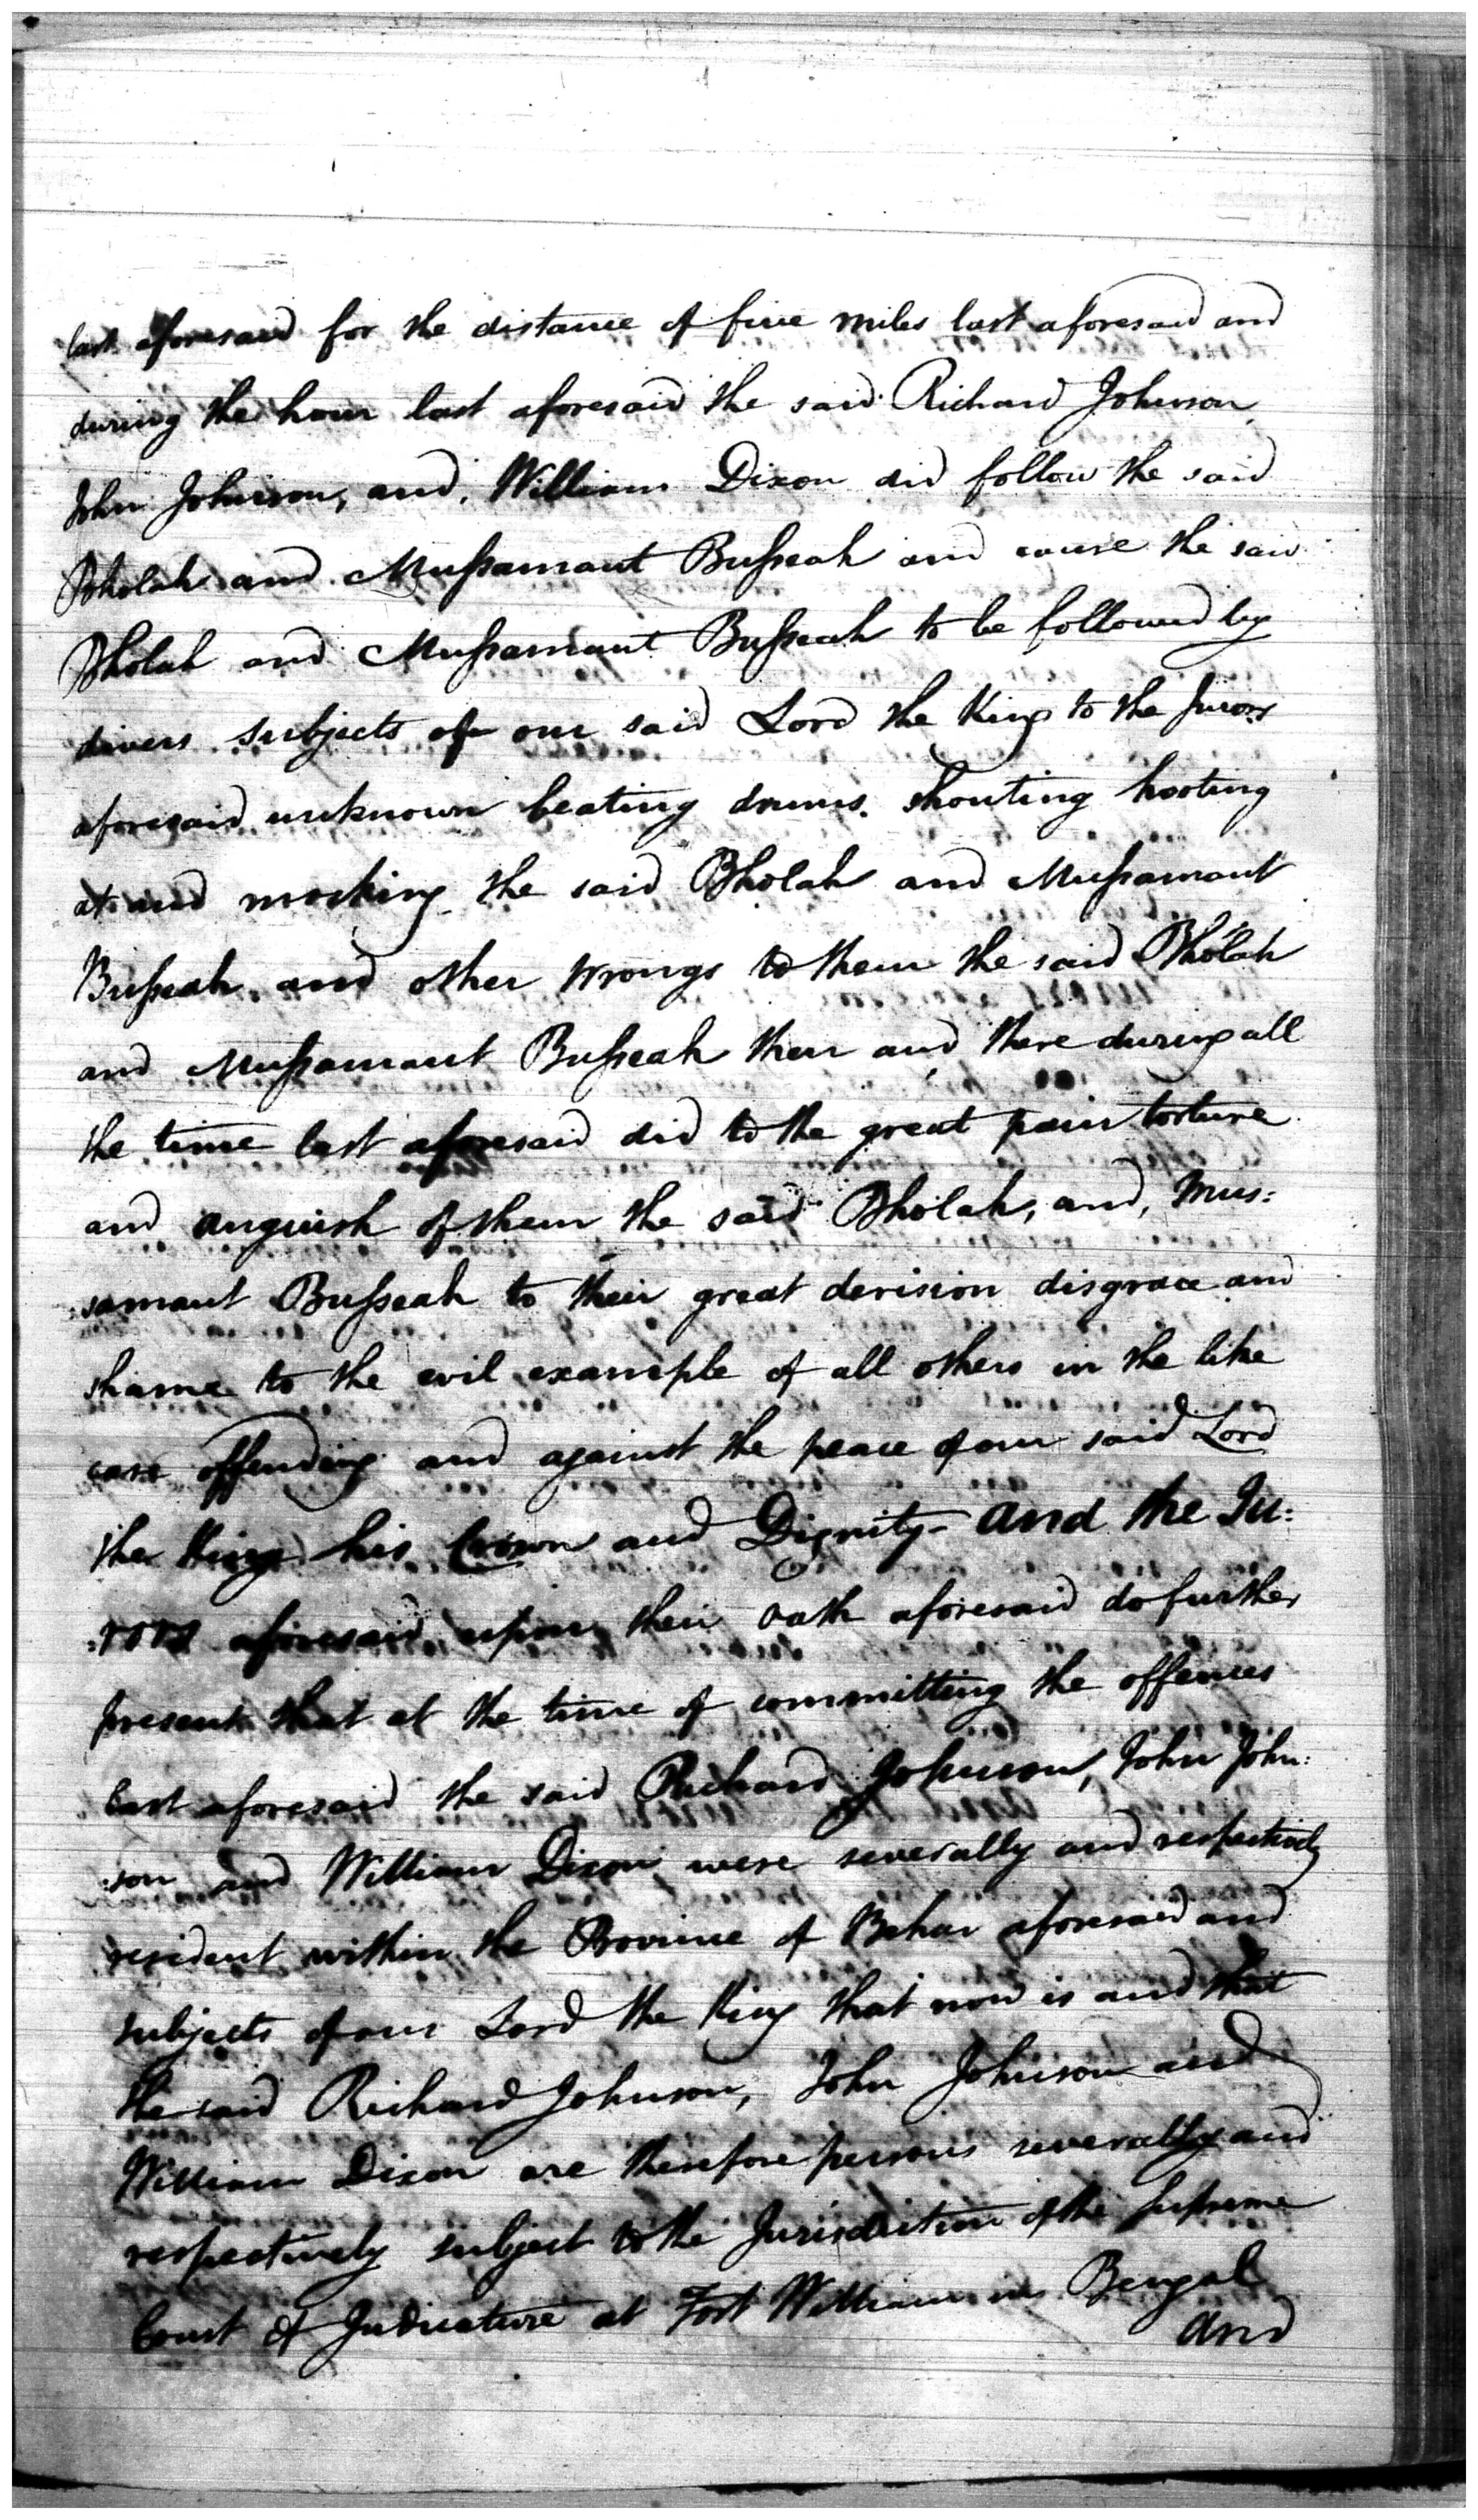 last aforesaid for the distance of five miles last aforesaid and
during the hour last aforesaid the said Richard Johnson
John Johnson, and, William Dixon did follow the said
Bholah and Mussamaut Busseah and cause the said
Bholah and Mussamaut Busseah to be followed by
divers subjects of our said Lord the King to the Jurors
aforesaid unknown beating drums. Shouting hooting
at and mocking the said Bholah and Mussamaut
Busseah and other wrongs to them the said Bholah
and Mussamaut Busseah then and there during all
the time last aforesaid did to the great pain torture
and anguish of them the said Bholah, and, Mus:
:samaut Busseah to their great derision disgrace and
shame to the evil example of all others in the like
case offending and against the peace of our said Lord
the King his Crown and Dignity- And the Ju:
:rors aforesaid upon their Oath aforesaid do further
present that at the time of committing the offences
last aforesaid the said Richard Johnson, John John:
:son and William Dixon were severally and respectively
resident within the Province of Behar aforesaid and
subjects of our Lord the King that now is and that
the said Richard Johnson, John Johnson and
William Dixon are therefore persons severally and
respectively subject to the Jurisdiction of the Supreme
Court of Judicature at Fort William in Bengal
And